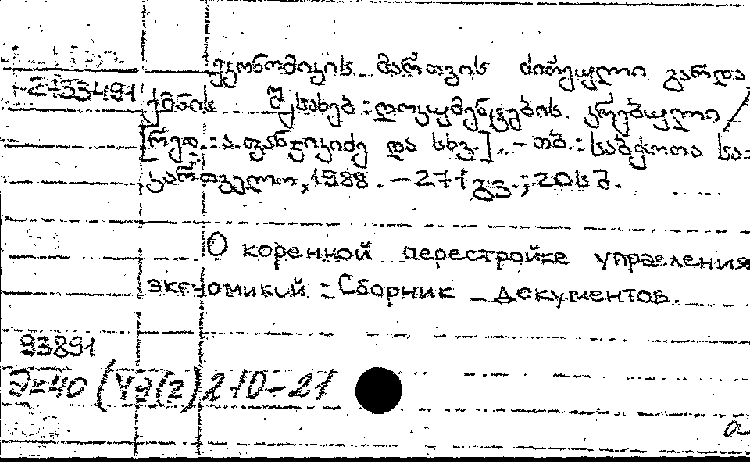 ეკონომიკის მართვის ძირეული გარდა
2-33491 ქმნის შესახებ : დოკუმენტების კრებული /
[რედ.: ა. ფანჯიკიძე და სხვ.]. - თბ.: საბჭოთა სა-
ქართველო, 1988. - 271 გვ.; 20სმ.
О коренной перестройке управления
экономикой : Сборник документов.
93891
Э=40 (42(2) 210-21